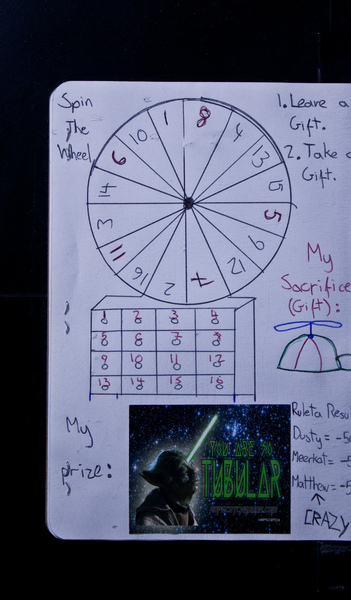 Spin
The
Wheel
1. Leave a
Gift.
2. Take a
Gift.
1
8
4
13
15
5
9
12
7
2
16
11
3
14
6
10
My
Sacrifice
(Gift):
1 2 3 4
5 6 7 8
9 10 11 12
13 14 15 16
My
prize:
YOU ARE SO
TUBULAR
Ruleta Resu
Dusty = -5
Meerkat = -5
Matthew = -5
CRAZY